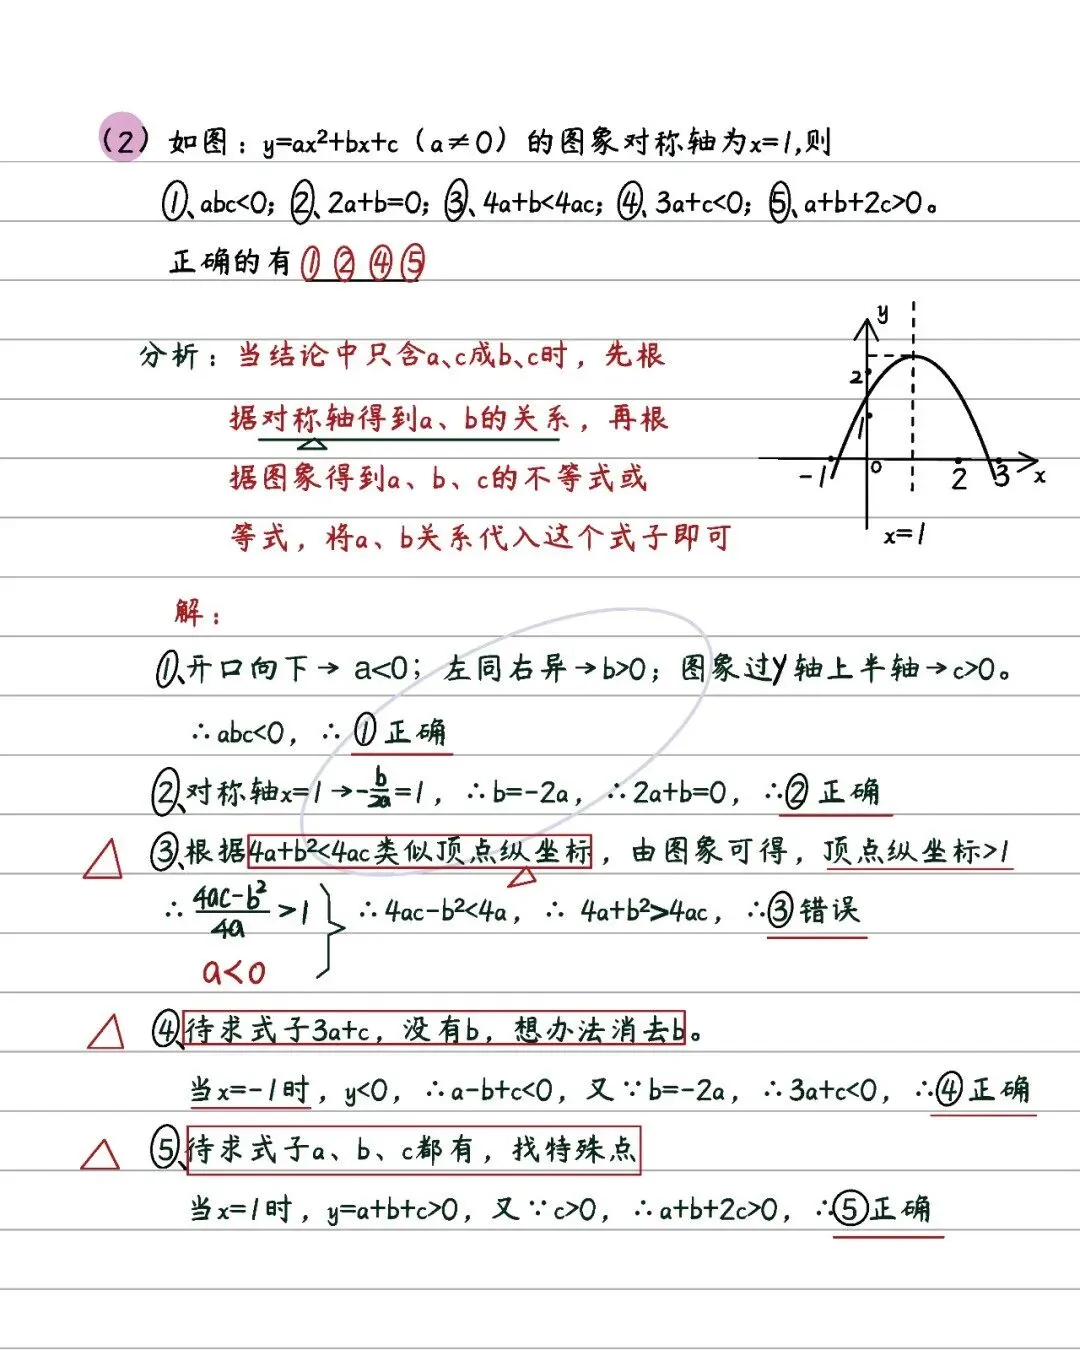 (2) 如图：y=ax²+bx+c（a≠0）的图象对称轴为x=1,则
①、abc<0；②、2a+b=0；③、4a+b<4ac；④、3a+c<0；⑤、a+b+2c>0。
正确的有①②④⑤
分析：当结论中只含a、c成b、c时，先根
据对称轴得到a、b的关系，再根
据图象得到a、b、c的不等式或
等式，将a、b关系代入这个式子即可
y
2
1
-1
0
2
3
x
x=1
解：
①、开口向下→a<0；左同右异→b>0；图象过y轴上半轴→c>0。
∴abc<0，∴①正确
②、对称轴x=1→-b/2a=1，∴b=-2a，∴2a+b=0，∴②正确
③、根据4a+b²<4ac类似顶点纵坐标，由图象可得，顶点纵坐标>1
∴(4ac-b²)/4a>1 ∴4ac-b²<4a，∴4a+b²>4ac，∴③错误
a<0
④、待求式子3a+c，没有b，想办法消去b。
当x=-1时，y<0，∴a-b+c<0，又∵b=-2a，∴3a+c<0，∴④正确
⑤、待求式子a、b、c都有，找特殊点
当x=1时，y=a+b+c>0，又∵c>0，∴a+b+2c>0，∴⑤正确